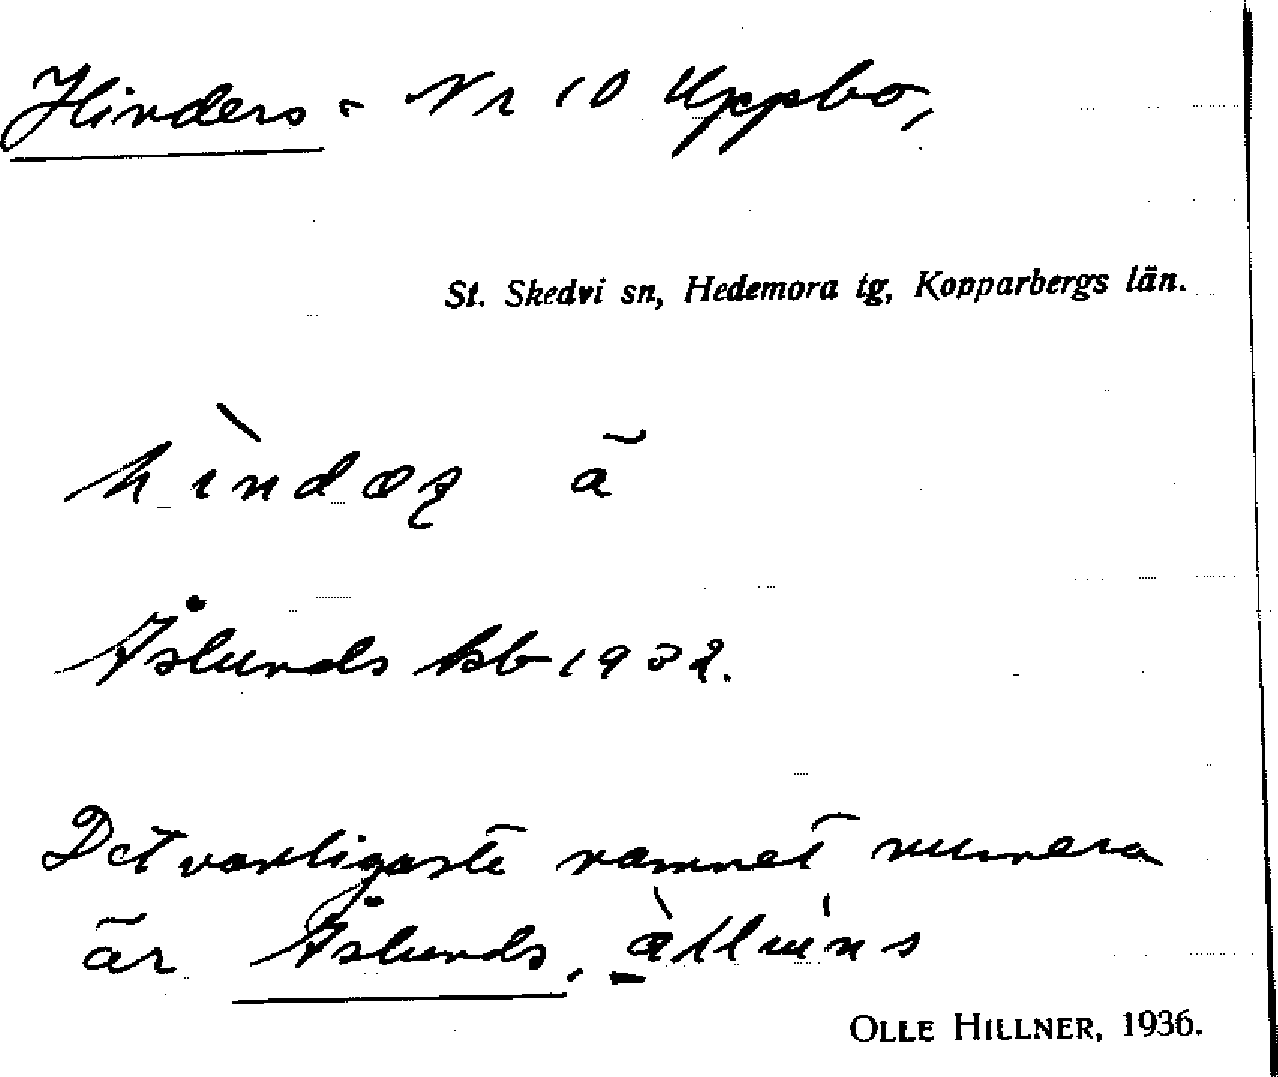 Hinders - Nr 10 Uppbo,
St. Skedvi sn, Hedemora tg, Kopparbergs län.
ä
Åslunds kb 1932.
Det vanligaste namnet numera
är Åslunds,
OLLE HILLNER, 1936.